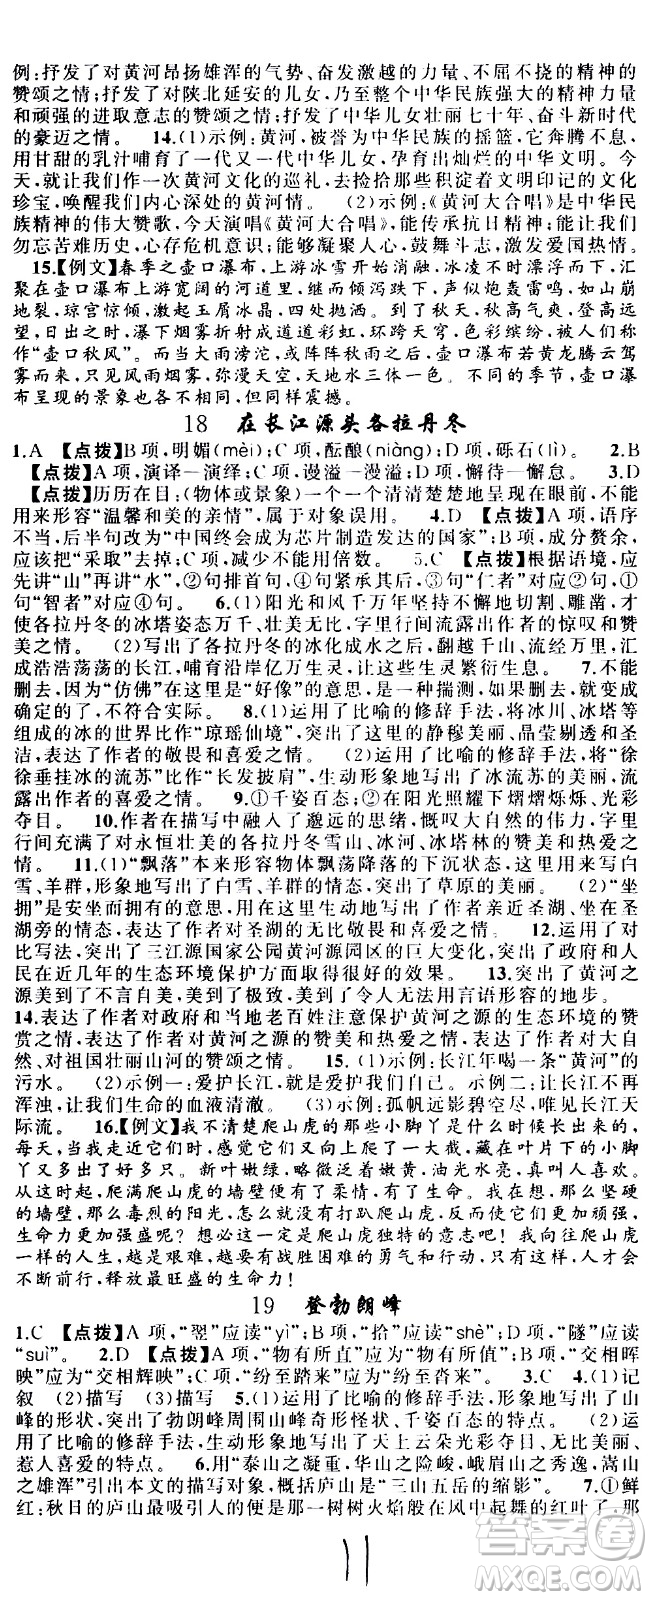 例:抒发了对黄河昂扬雄浑的气势、奋发激越的力量、不屈不挠的精神的
赞颂之情;抒发了对陕北延安的儿女,乃至整个中华民族强大精神力量和
顽强的进取意志的赞颂之情;抒发了对中华儿女壮丽七十年、奋斗新时代
的豪迈之情。 14.(1)示例:黄河,被誉为中华民族的摇篮,它奔腾不息,
用甘甜的乳汁哺育了一代又一代中华儿女,孕育出灿烂的中华文明。今
天,就让我们作一次黄河文化的巡礼,去捡拾那些积淀着文明印记的文化
珍宝,唤醒我们内心深处的黄河情。 (2)示例:《黄河大合唱》是中华民
族精神的伟大赞歌,今天演唱《黄河大合唱》,传承抗日精神;能让我们
勿忘苦难历史,心存危机意识;能够凝聚人心,鼓舞斗志,激发爱国热情。
15.【例文】春季之壶口瀑布,上游冰雪开始消融,冰凌不时漂浮而下,汇
聚在壶口瀑布上游宽阔的河道里,一时倾泻跌下,恰似炮轰雷鸣,如山崩
地裂,琼宫倾倒,激起玉屑冰晶,四处抛洒。到了秋天,秋高气爽,登高远
望,日出之时,瀑下烟雾折射成道道彩虹,环跨天穹,色彩缤纷,被人们称
作“壶口秋风”。而当大雨滂沱,或阵阵秋雨之后,壶口瀑布若黄龙腾云驾
雾而来,只见风雨烟雾,弥漫天空,天地水浑然一色。不同的季节,壶口瀑
布呈现的景象也各不相同,但都蔚为壮观。
18 在长江源头各拉丹冬
1.A 【点拨】B项,明媚(mèi);C项,酝酿(niàng);D项,砾石(lì)。 2.B
【点拨】A项,演译一演绎;C项,谩溢一漫溢;D项,懈待一懈怠。 3.D
【点拨】历历在目:(物体或景象)一个一个清清楚楚地呈现在眼前,不能
用来形容“温馨和美的亲情”,属于对象误用。 4.D 【点拨】A项,语序
不当,后半句改为“中国终会成为芯片制造发达的国家”;B项,成分赘余,
应该把“采取”去掉;C项,减少不能用倍数。 5.C 【点拨】根据语境,应
先讲“山”再讲“水”,②句排首句,④句紧承其后;③句“仁者”对应②句,①
句“智者”对应④句。 6.(1)阳光和风千万年坚持不懈地切割、雕凿,才
使各拉丹冬的冰塔姿态万千、壮美无比,字里行间流露出作者的惊叹和赞
美之情。 (2)写出了各拉丹冬的冰化成水之后,翻越千山、流经万里,汇
成浩浩荡荡的长江,哺育沿岸亿万生灵,使这些生灵繁衍生息。 7.不能
删去,因为“仿佛”是“好像”的意思,是一种揣测,如果删去,就变成是确
定的了,不符合实际。 8.(1)运用了比喻的修辞手法,将冰川、冰塔等
组成的冰的世界比作“琼瑶仙境”,突出了这里的静穆无瑕、晶莹剔透和圣
洁,表达了作者的敬畏和喜爱之情。 (2)运用了比喻的修辞手法,把“徐
徐垂挂冰的流苏”比作“长发披肩”,生动形象地写出了冰流苏的美丽,流
露出作者的喜爱之情。 9.①千姿百态;②在阳光照耀下熠熠烁烁、光彩
夺目。 10.作者在描写中融入了邈远的情思,慨叹大自然的伟力,字里
行间流露出对永恒壮美的各拉丹冬雪山、冰河、冰塔林的赞美和热爱之
情。 11.(1)“飘落”本来形容物体飘荡降落的下沉状态,这里用来描写白
雪、羊群,形象地写出了白雪、羊群的情态,突出了草原的美丽。 (2)“坐
拥”是安坐而拥有的意思,用在这里生动形象地写出了作者亲近圣湖、坐在圣
湖旁的情态,表达了作者对圣湖的无比敬畏和喜爱之情。 12.运用了对
比写法,突出了三江源国家公园黄河源园区的巨大变化,突出了政府和人
民在近几年的生态环境保护方面取得很好的效果。 13.突出了黄河之
源美到了不言自美,美到了极致,美到了令人无法用言语形容的地步。
14.表达了作者对政府和当地老百姓注意保护黄河之源的生态环境的赞
赏之情,表达了作者对黄河之源的赞美和热爱之情,表达了作者对大自
然、对祖国壮丽山河的赞颂之情。 15.(1)示例:长江年喝一条“黄河”的
污水。 (2)示例一:爱护长江,就是爱护我们自己。示例二:让长江不再
浑浊,让我们生命的血液清澈。 (3)示例:孤帆远影碧空尽,唯见长江天
际流。 16.【例文】我不清楚爬山虎的这些小脚丫是什么时候长出来的,
每天,当我去看它们时,总感觉它们又向上爬了一大截,藏在叶片下的小脚
丫又多出了许多只。新叶嫩绿,略微泛着嫩黄,油光水亮,真叫人喜欢。
从这时起,爬满爬山虎的墙壁便有了柔情,有了生命。我想,那么坚硬的
的墙壁,那么毒烈的阳光,都没有打趴爬山虎,反而使它们愈加顽强,
生命力更加强盛呢?想必这一定是爬山虎执着向上的信念吧!我想:我们
一样的人生,越艰难,越要有战胜困难的勇气和行动,这样我们才会
不断前行,释放最旺盛的生命力!
19 登勃朗峰
1.C 【点拨】A项,“翌”应读“yì”;B项,“拾”应读“shè”;D项,“隧”应读
“suì”。 2.D 【点拨】A项,“物有所直”应为“物有所值”;B项,“交相晖
映”应为“交相辉映”;C项,“纷至踏来”应为“纷至沓来”。 3.C 4.(1)记
叙 (2)描写 (3)描写 5.(1)运用了比喻的修辞手法,形象地写出了山
峰的形状,突出了勃朗峰周围山峰奇形怪状、千姿百态的特点。 (2)运
用了比喻的修辞手法,生动形象地写出了天上云朵光彩夺目、变幻无穷、
惹人喜爱的特点。 6.用“泰山之凝重,华山之险峻,峨眉山之秀逸,嵩山
之雄浑”引出本文的描写对象,概括庐山是“三山五岳的缩影”。 7.①鲜
红:秋日的庐山最吸引人的便是那一树树火焰般在风中起舞的红叶了,那
11